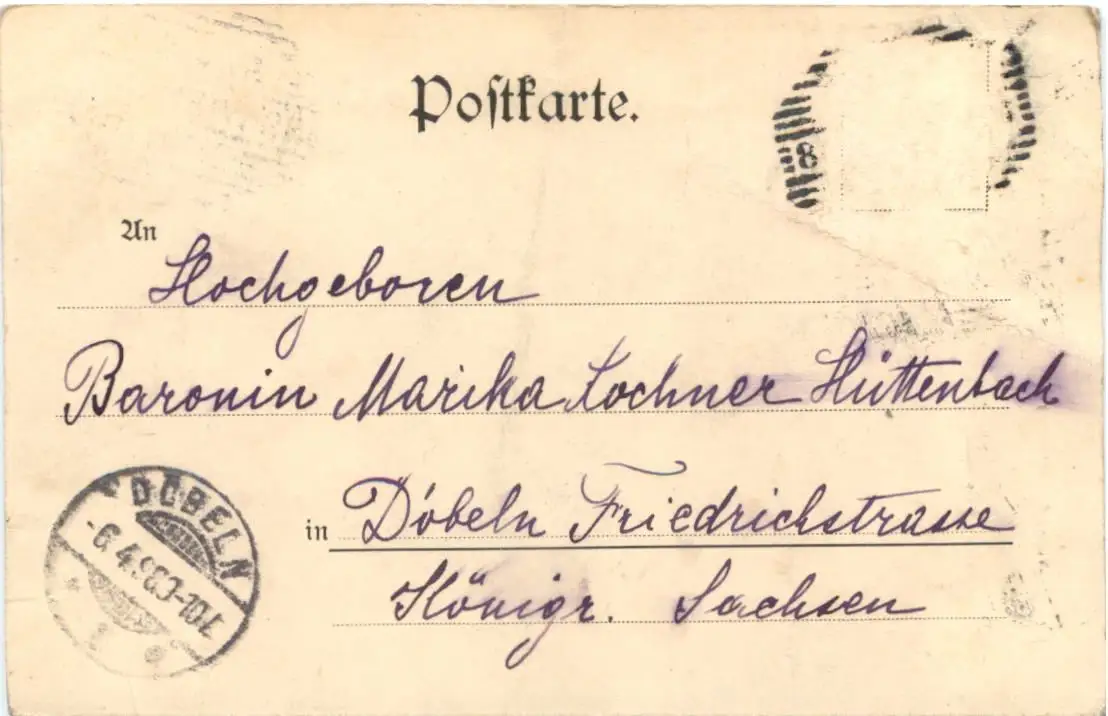 Postkarte.
An
Hochgeboren
Baronin Marika Lochner Hüttenbach
in Döbeln Friedrichstrasse
Königr. Sachsen
DÖBELN